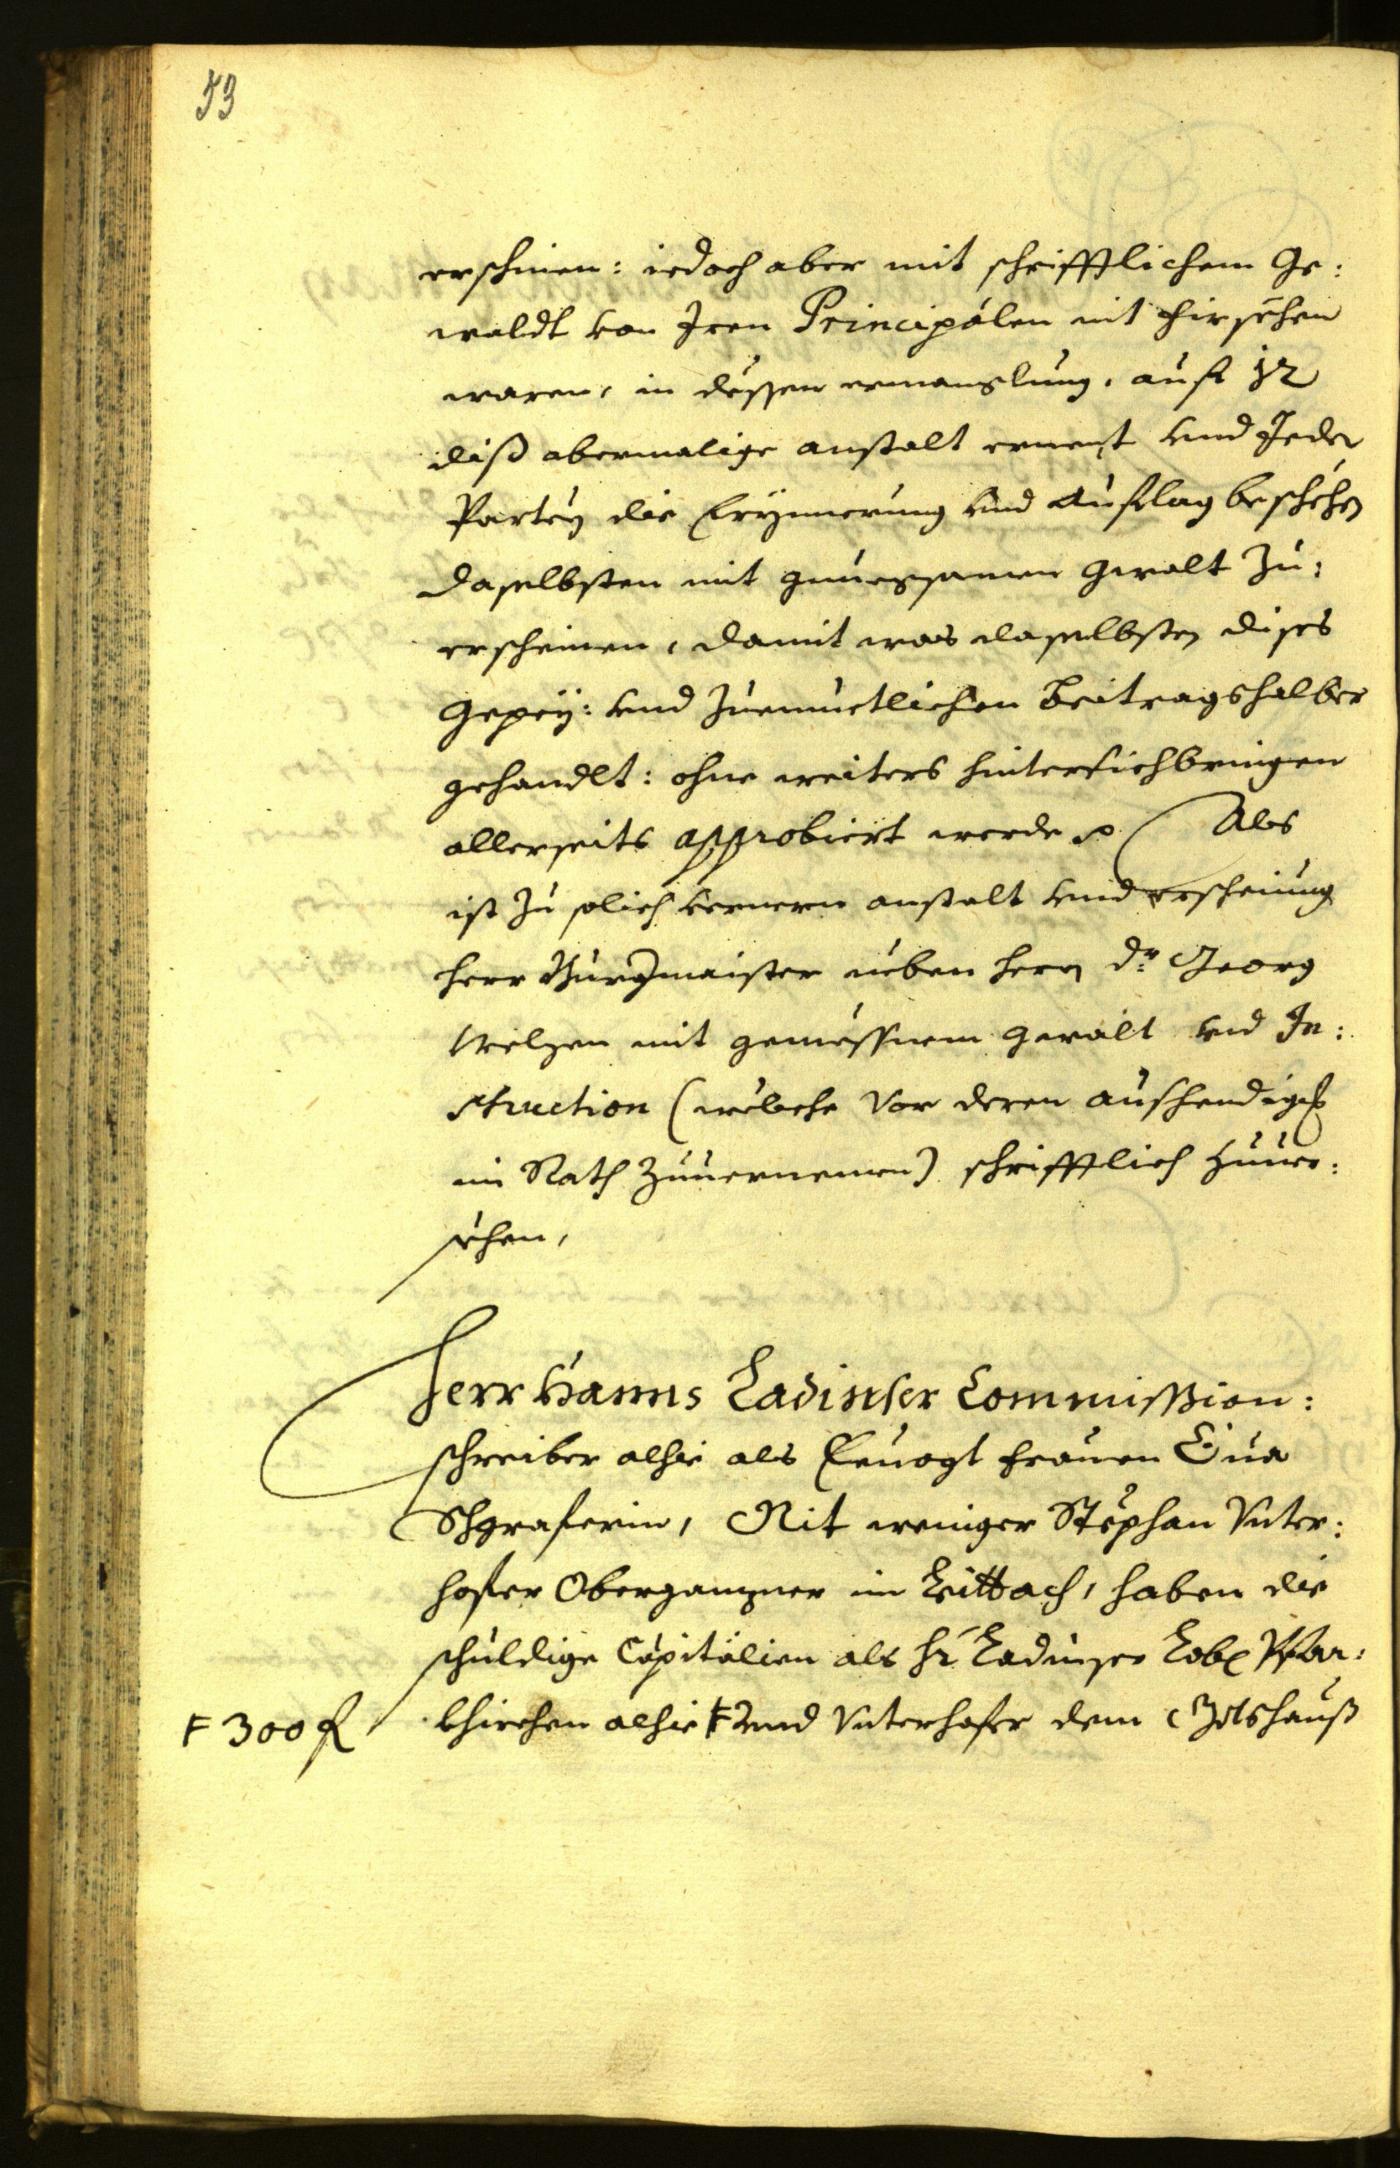 53
erschinen: iedoch aber mit schrifftlichem Ge:
waldt von Iren Principálen nit firsehen
waren, in dessen ermanglung, auf 12
diß abermalige anstalt ernent vnd Jeder
Partey die Erynnerung vnd Auflag beschehen
daselbsten mit gnuegsamen Gewalt Zu:
erscheinen, damit was daselbsten dises
Gepey: vnd Zuemuetlichen Beitragshalber
gehandlt: ohne weiters hintersichbringen
allerseits approbiert werde Als
ist Zu solich anstalt vnd erscheinung
herr Burgmaister neben herrn Dr Georg
Welzen mit gemessnem Gewalt vnd In:
struction (welche Vor deren aushendigs
im Rath Zuuernemen) schrifftlich Zuuer:
sehen,
Herr Hanns Ladinser Commission:
schreiber alhie als Eeuogt frauen Eua
Schgraferin, Nit weniger Stephan Vnter:
hofer Obergampner im Leittach, haben die
schuldige Capitälien als hr Ladinser Lobl Pfar:
khirchen alhie F vnd Vnterhofer dem Gotshauß
F 300 fl